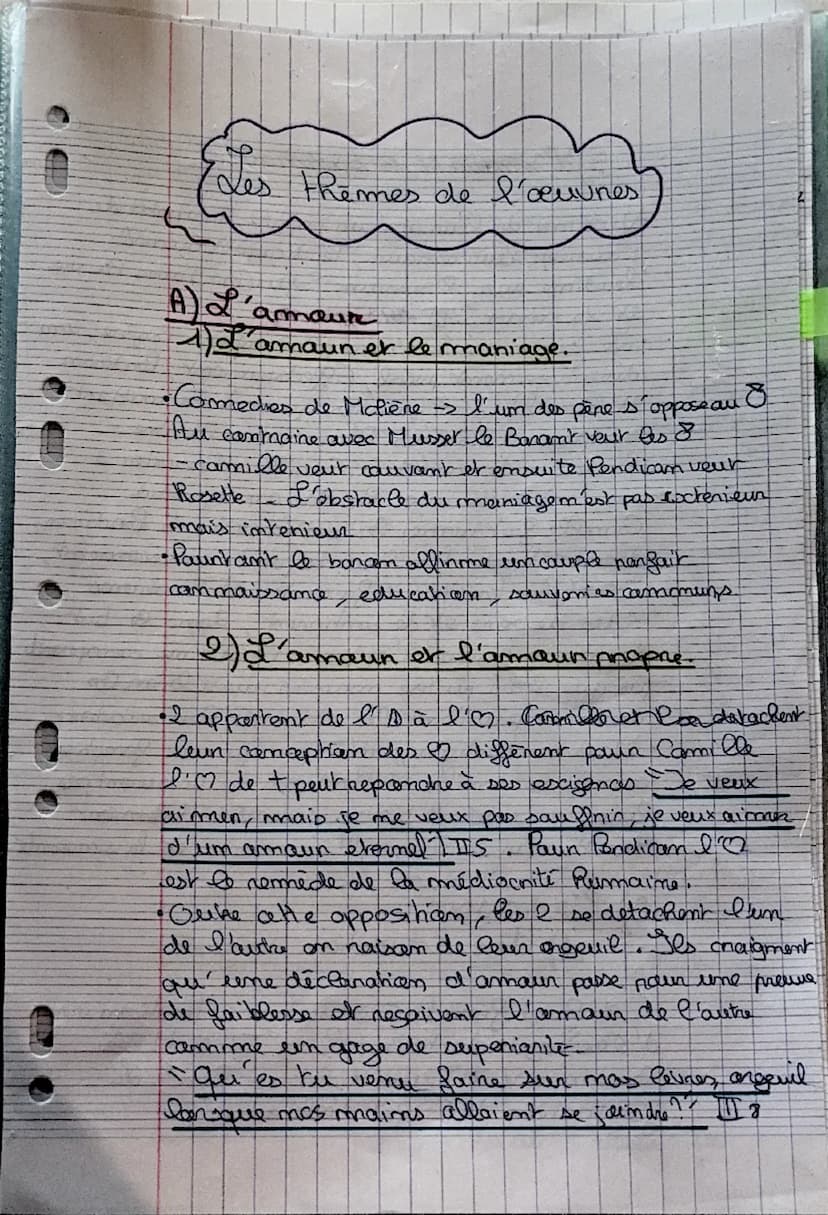 Les thèmes de l'œuvres
A) L'amour
1) L'amour et le mariage.
• Comedies de Molière -> l'un des père s'oppose au 8
Au contraire avec Musset le Baron veut les 8
- camille veut couvant et ensuite Perdican veut
Rosette - L'obstacle du mariage n'est pas exterieur
mais interieur
• Pourtant le baron affirme un couple parfait
connaissance, education, souvenies communs
2) L'amour et l'amour propre.
• 2 appartent de l' à l'♡. Camille et se detachent
leur conception des ♡ different pour Camille
l'♡ de + peut repondre à ses exigences "Je veux
aimer, mais je ne veux pas souffrir, je veux aimer
d'un amour eternel" II5. Pour Perdican l'♡
est le remède de la médiocrité humaine.
• Outre cette opposition, les 2 se detachent l'un
de l'autre en raison de leur orgeuil. Ils craignent
qu'une déclaration d'amour passe pour une preuve
de faiblesse et resoivent l'amour de l'autre
comme un gage de superiorité
"Qu'es tu venu faire sur nos lèvres, orgeuil
lorsque nos mains allaient se joindre?" III 8